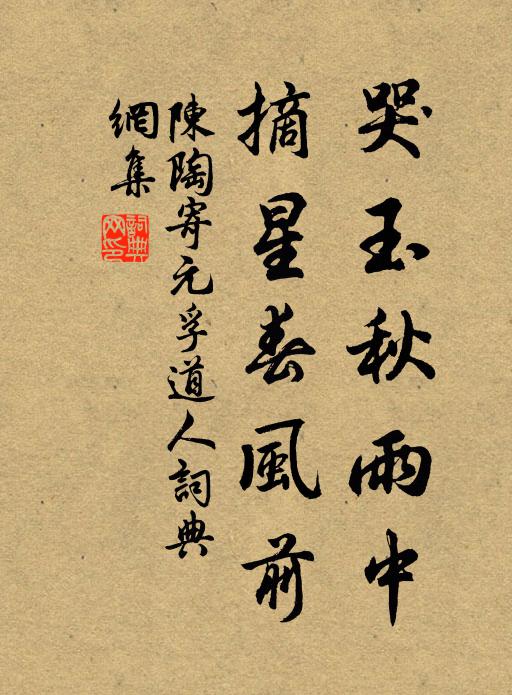 哭玉秋雨中
摘星春風前
陳陶寄元孚道人詞典
網集
詞典網印